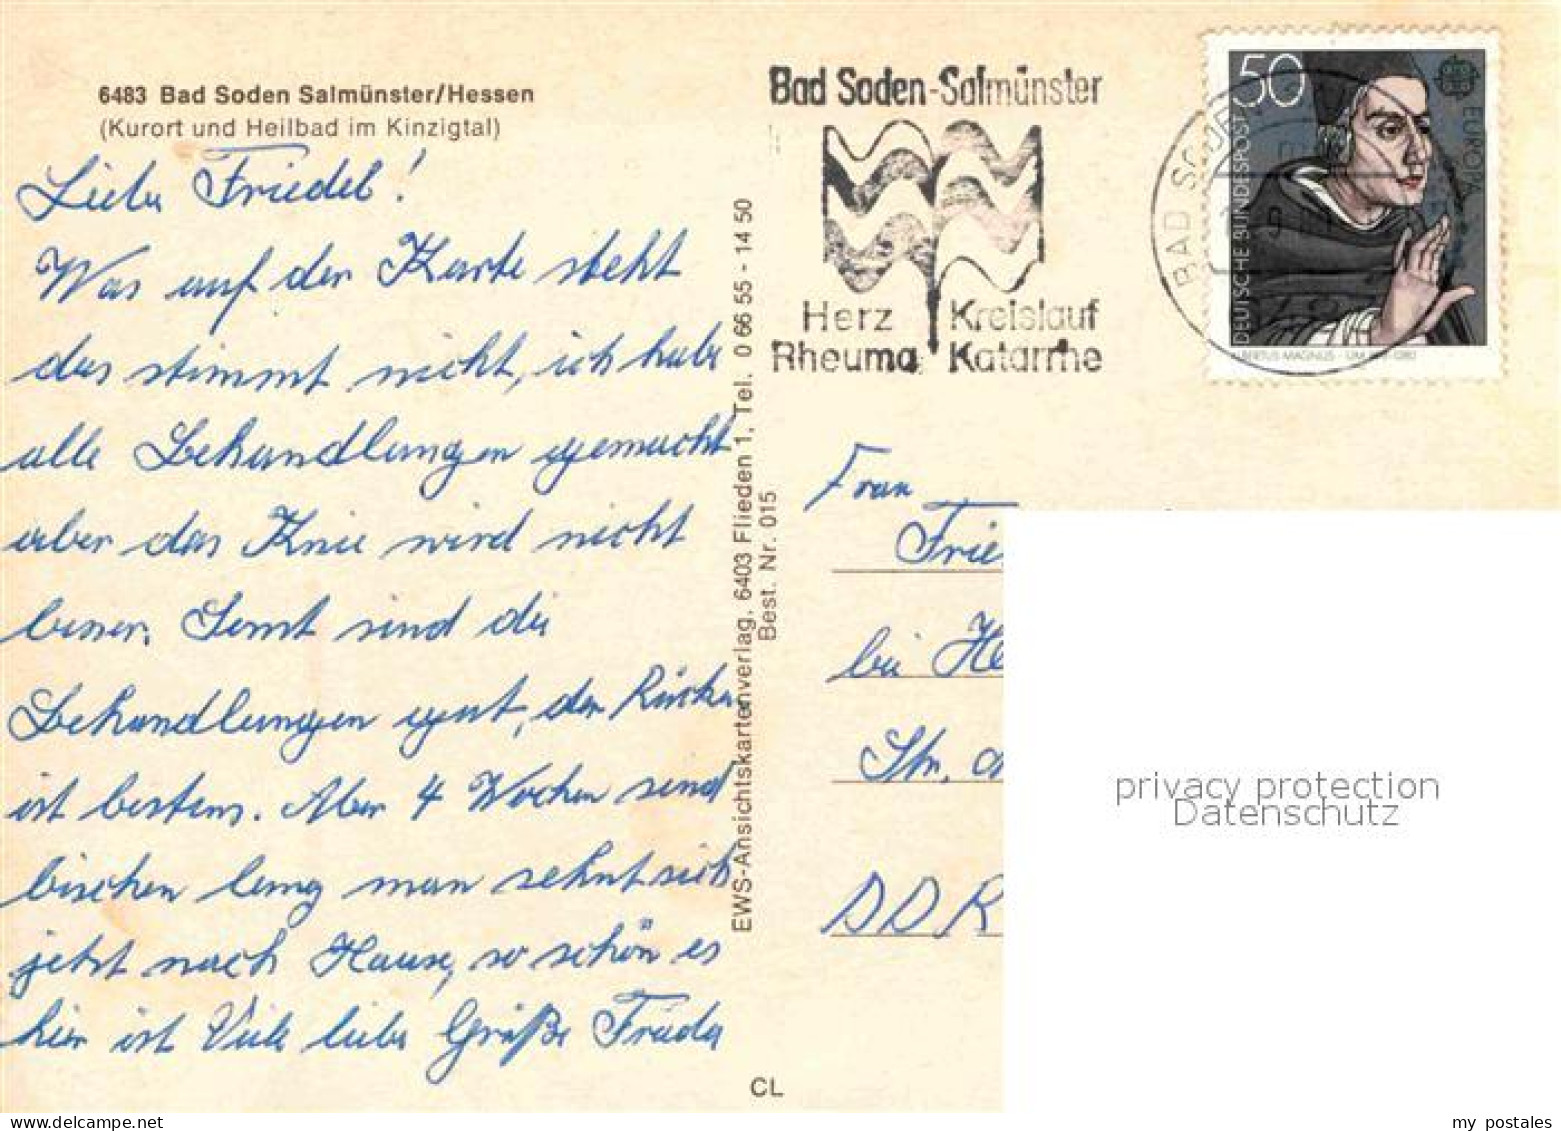 6483 Bad Soden Salmünster/Hessen
(Kurort und Heilbad im Kinzigtal)
Liebe Friedel!
Was auf der Karte steht
das stimmt nicht, ich habe
alle Behandlungen gemacht
aber das Knie wird nicht
besser. Sonst sind die
Behandlungen gut, der Rücken
ist bestens. Aber 4 Wochen sind
bischen lang man sehnt sich
jetzt nach Hause, so schön es
hier ist Viele liebe Grüße Frieda
EWS-Ansichtskartenverlag, 6403 Flieden 1, Tel. 0 66 55 - 14 50
Best. Nr. 015
CL
Bad Soden-Salmünster
Herz Kreislauf
Rheuma Katarrhe
BAD SODEN
50
DEUTSCHE BUNDESPOST
EUROPA
ALBERTUS MAGNUS
Frau
Frie
bei He
Str. d
DDR
privacy protection
Datenschutz
my postales